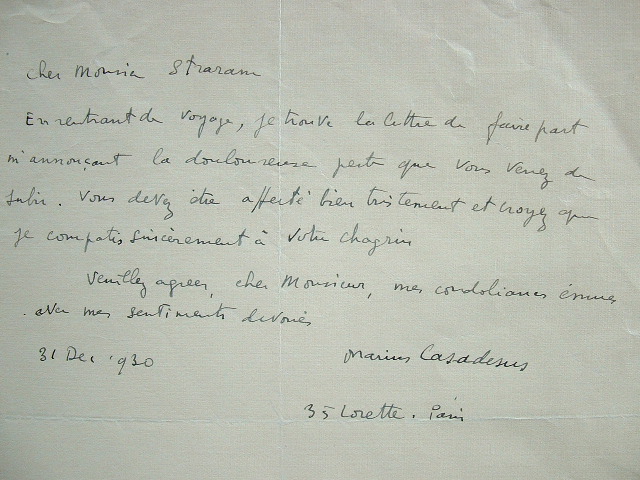 Cher Monsieur Straram
En rentrant de voyage, je trouve la lettre de faire part
m'annonçant la douloureuse perte que vous venez de
subir. Vous devez être affecté bien tristement et croyez que
je compatis sincèrement à votre chagrin
Veuillez agréer, cher Monsieur, mes condoléances émues
avec mes sentiments dévoués
31 Dec '930 Marius Casadesus
35 Lorette. Paris